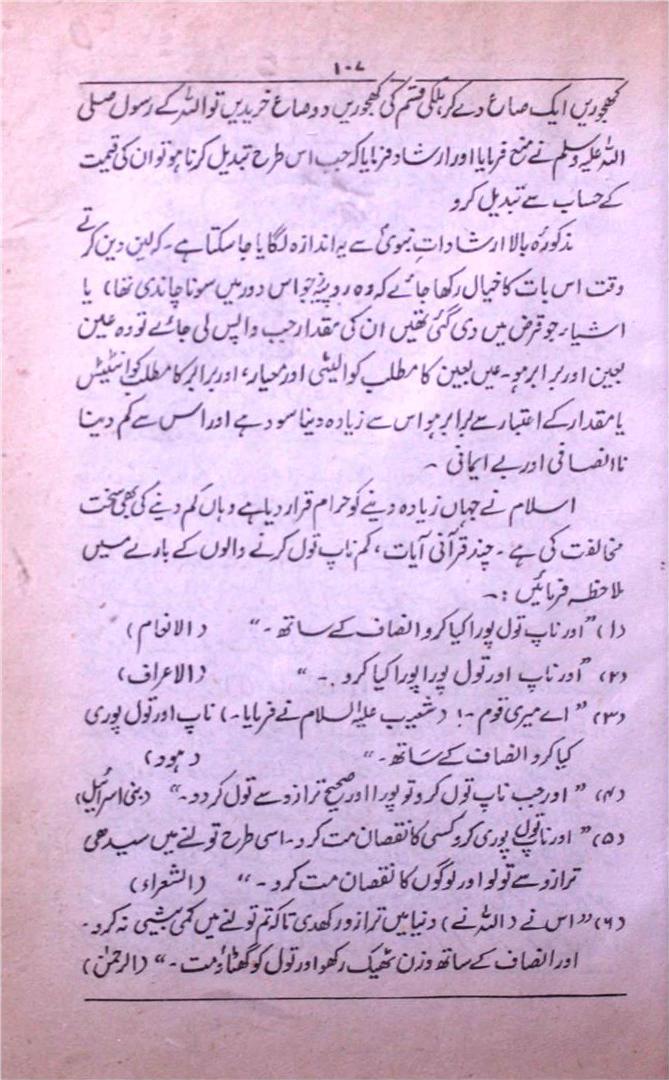 ۱۰۷
کھجوریں ایک صاع دے کر ہلکی قسم کی کھجوریں دو صاع خریدیں تو اللہ کے رسول صلی
اللہ علیہ وسلم نے منع فرمایا اور ارشاد فرمایا کہ جب اس طرح تبدیل کرنا ہو تو ان کی قیمت
کے حساب سے تبدیل کرو
مذکورہ بالا ارشادات نبویؐ سے یہ اندازہ لگایا جا سکتا ہے۔ کہ لین دین کرتے
وقت اس بات کا خیال رکھا جائے کہ وہ روپیہ (جو اس دور میں سونا چاندی تھا) یا
اشیاء جو قرض میں دی گئی تھیں ان کی مقدار جب واپس لی جائے تو وہ عین
بعین اور برابر ہو۔ عین بعین کا مطلب کوالیٹی اور معیار، اور برابر کا مطلب کوانٹیٹس
یا مقدار کے اعتبار سے برابر ہو اس سے زیادہ دینا سود ہے اور اس سے کم دینا
نا انصافی اور بے ایمانی ۔
اسلام نے جہاں زیادہ دینے کو حرام قرار دیا ہے وہاں کم دینے کی بھی سخت
مخالفت کی ہے ۔ چند قرآنی آیات، کم ناپ تول کرنے والوں کے بارے میں
ملاحظہ فرمائیں :۔
(۱) ”اور ناپ تول پورا کیا کرو انصاف کے ساتھ۔“ (الانعام)
(۲) ”اور ناپ اور تول پورا پورا کیا کرو ۔“ (الاعراف)
(۳) ”اے میری قوم ۔! (شعیب علیہ السلام نے فرمایا۔) ناپ اور تول پوری
کیا کرو انصاف کے ساتھ۔“ (ہود)
(۴) ”اور جب ناپ تول کرو تو پورا اور صحیح ترازو سے تول کر دو۔“ (بنی اسرائیل)
(۵) ”اور ناپ تول پوری کرو کسی کا نقصان مت کرو۔ اسی طرح تولنے میں سیدھی
ترازو سے تولو اور لوگوں کا نقصان مت کرو ۔“ (الشعراء)
(۶) ”اس نے (اللہ نے) دنیا میں ترازو رکھدی تاکہ تم تولنے میں کمی بیشی نہ کرو۔
اور انصاف کے ساتھ وزن ٹھیک رکھو اور تول کو گھٹاؤ مت ۔“ (الرحمٰن)